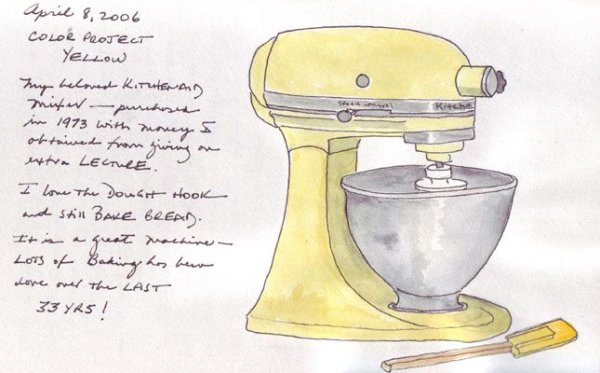 April 8, 2006
COLOR PROJECT
YELLOW
My beloved KITCHENAID
mixer — purchased
in 1973 with money I
obtained from giving an
extra LECTURE.
I love the DOUGH HOOK
and still BAKE BREAD.
It is a great machine —
LOTS of Baking has been
done over the LAST
33 YRS!
Kitche